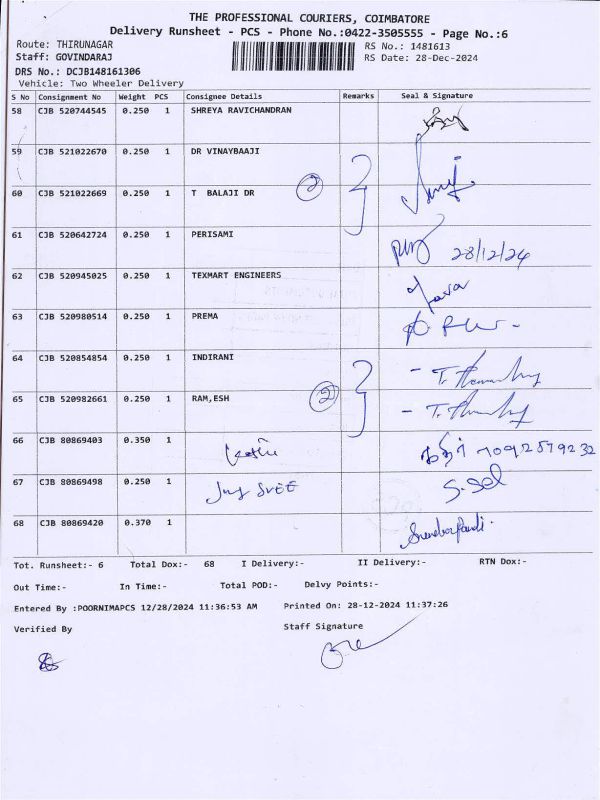 THE PROFESSIONAL COURIERS, COIMBATORE
Delivery Runsheet - PCS - Phone No.:0422-3505555 - Page No.:6
Route: THIRUNAGAR RS No.: 1481613
Staff: GOVINDARAJ RS Date: 28-Dec-2024
DRS No.: DCJB148161306
Vehicle: Two Wheeler Delivery
S No Consignment No Weight PCS Consignee Details Remarks Seal & Signature
58 CJB 520744545 0.250 1 SHREYA RAVICHANDRAN
59 CJB 521022670 0.250 1 DR VINAYBAAJI
60 CJB 521022669 0.250 1 T BALAJI DR 2
61 CJB 520642724 0.250 1 PERISAMI 28/12/24
62 CJB 520945025 0.250 1 TEXMART ENGINEERS
63 CJB 520980514 0.250 1 PREMA
64 CJB 520854854 0.250 1 INDIRANI
65 CJB 520982661 0.250 1 RAM,ESH 2
66 CJB 80869403 0.350 1 7092579232
67 CJB 80869498 0.250 1 SVEE S.Sel
68 CJB 80869420 0.370 1
Tot. Runsheet:- 6 Total Dox:- 68 I Delivery:- II Delivery:- RTN Dox:-
Out Time:- In Time:- Total POD:- Delvy Points:-
Entered By :POORNIMAPCS 12/28/2024 11:36:53 AM Printed On: 28-12-2024 11:37:26
Verified By Staff Signature